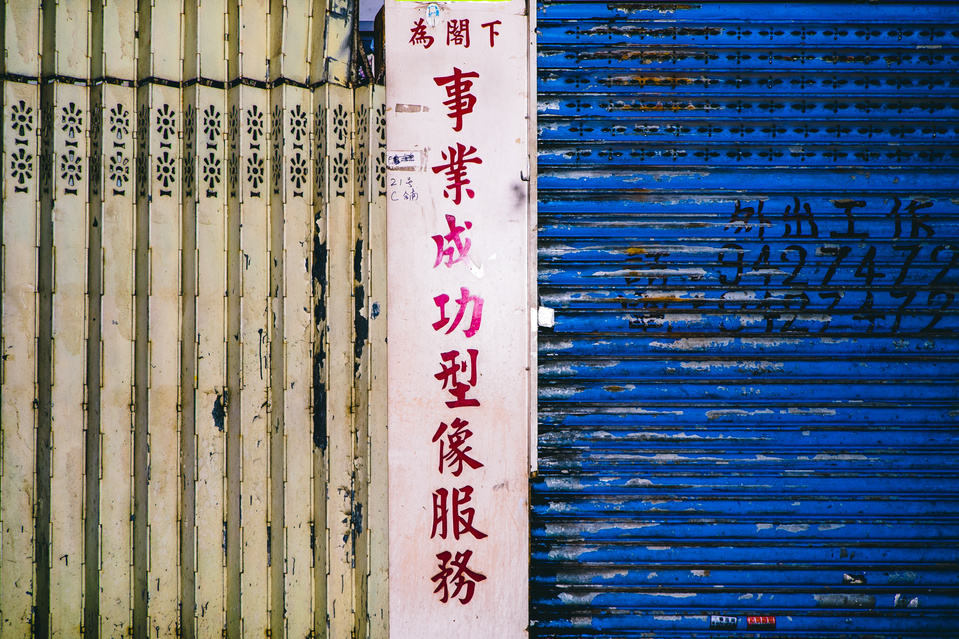 為閣下
事業成功型像服務
21号
C舖
外出工作
9427472